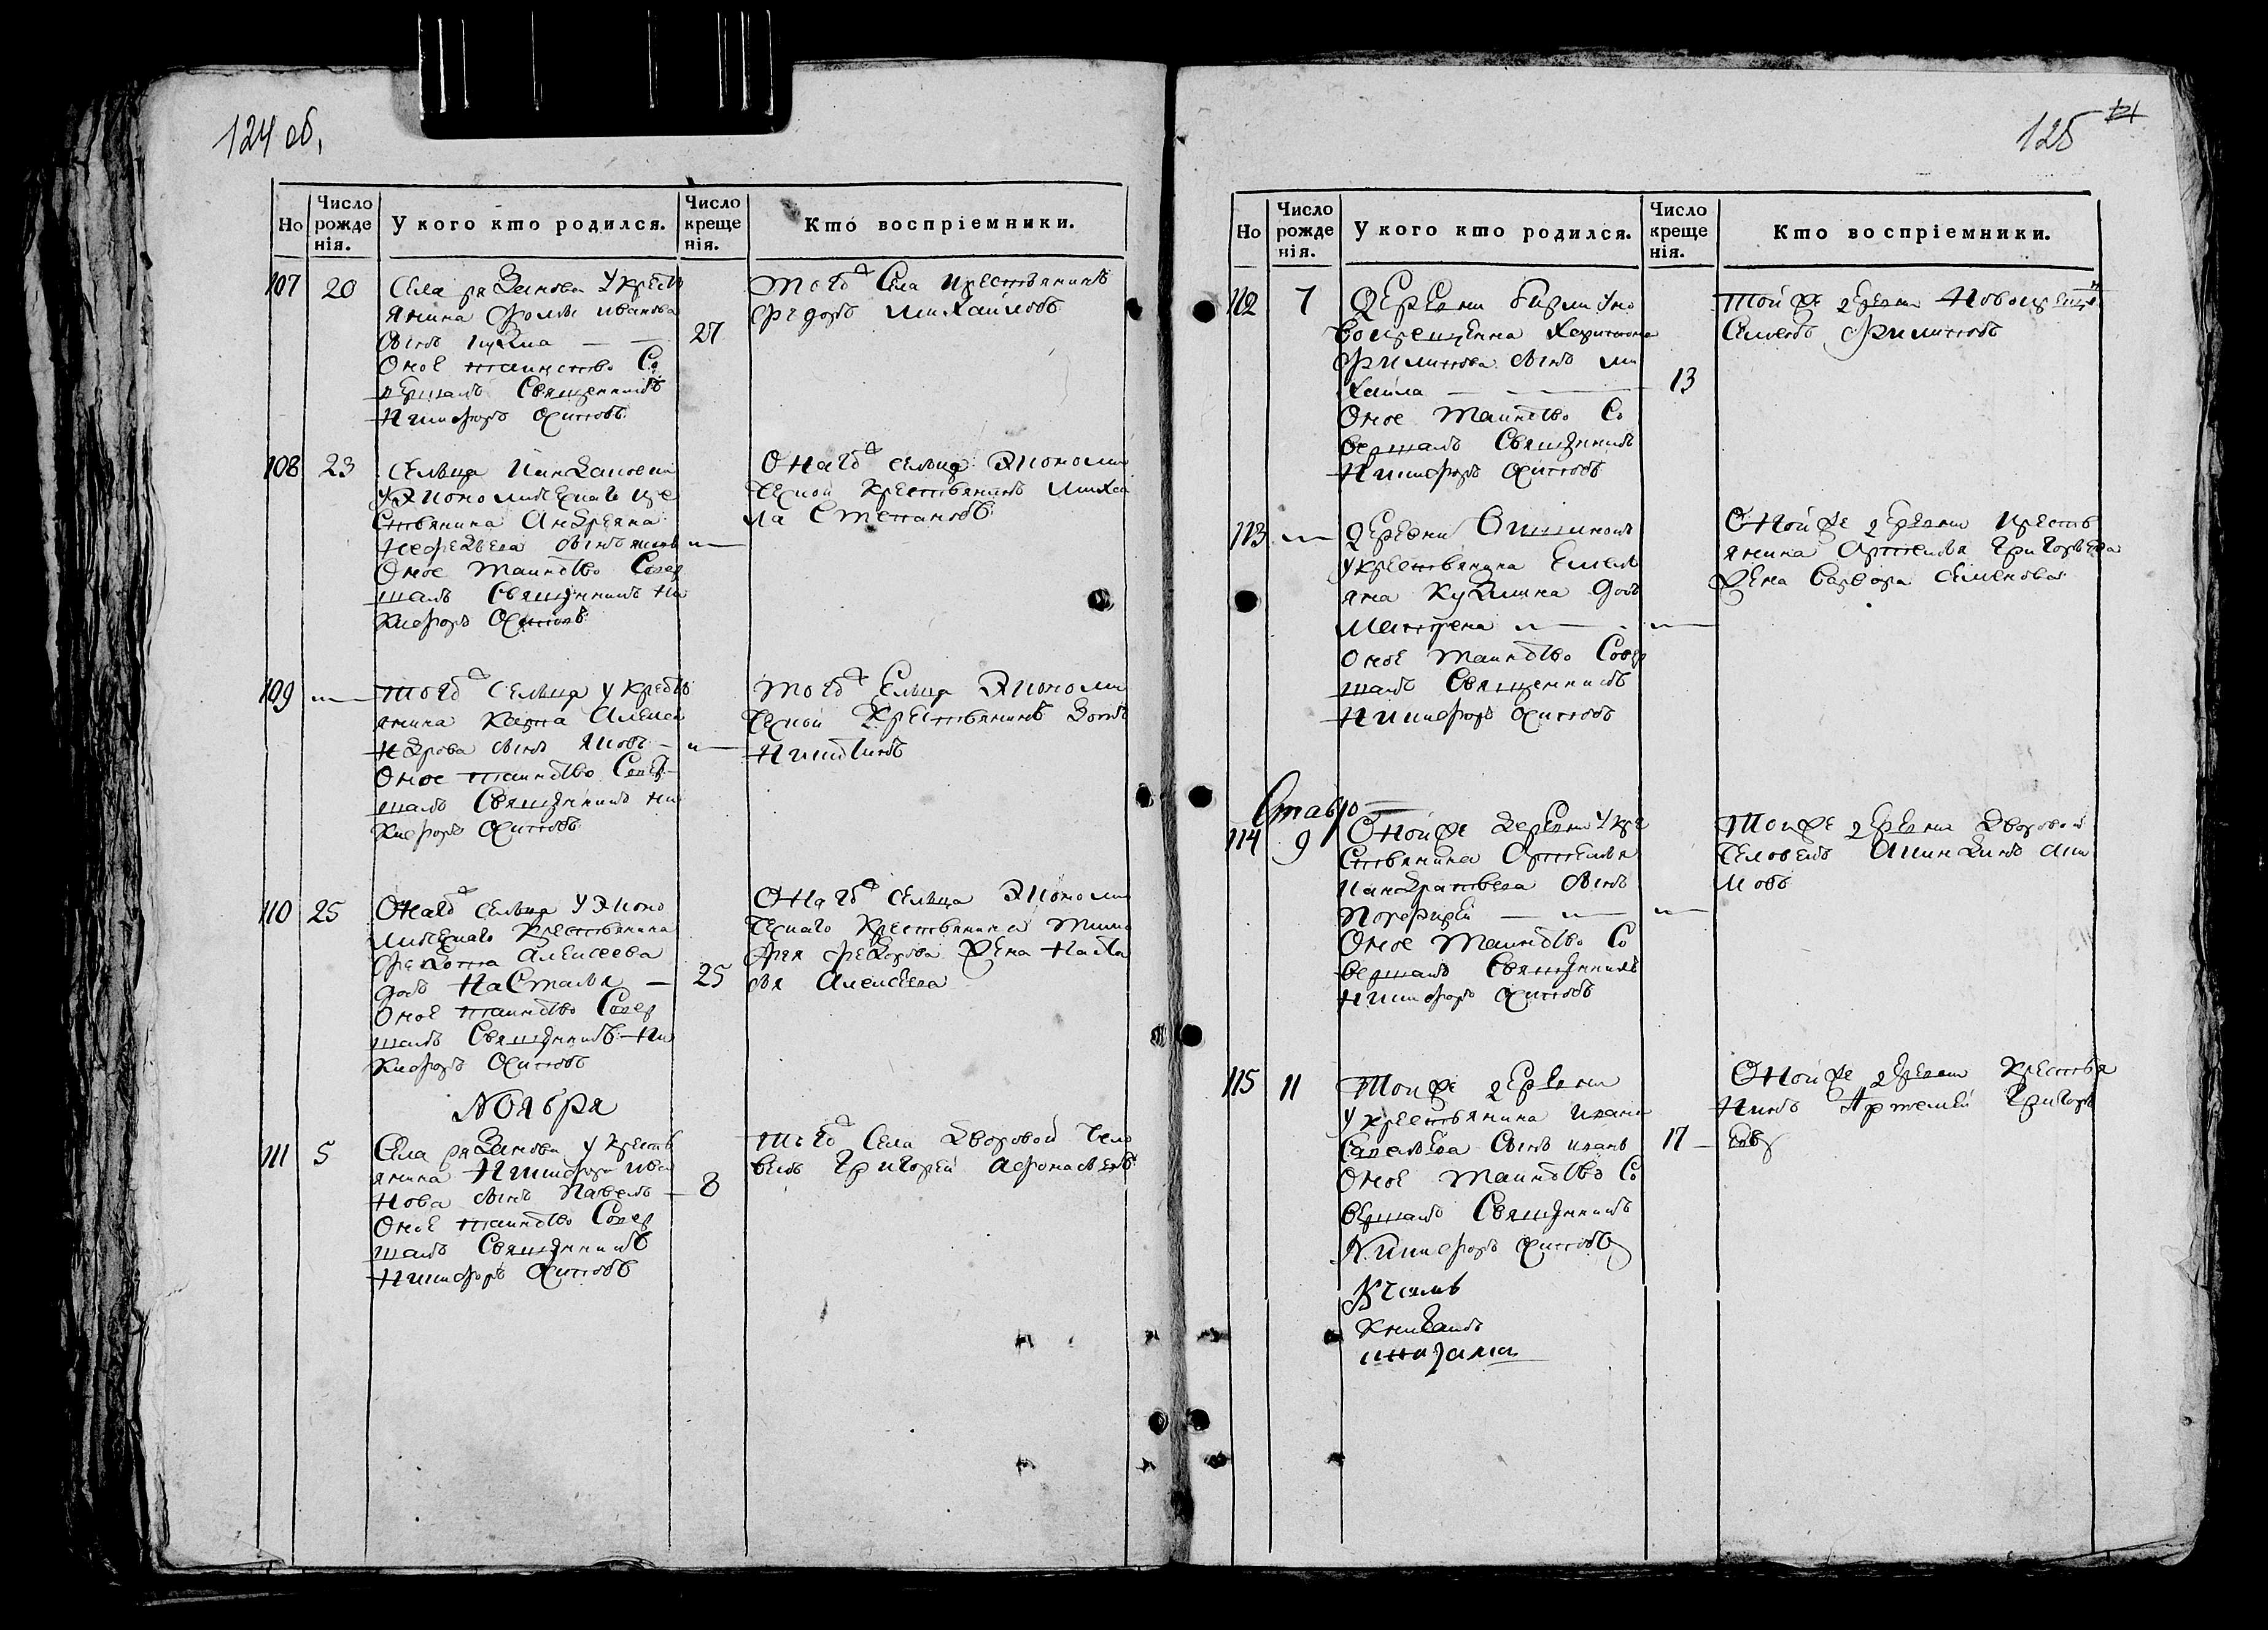 124 об.
Но
Число рожденія.
У кого кто родился.
Число крещенія.
Кто воспріемники.
107
20
Села рязанова у кресть
янина фомы иванова
сынъ кузма
27
Оное таинство Со
вершалъ Священникъ
Никифоръ Осиповъ
того Села крестьянинъ
федоръ михайловъ
108
23
Сельца
у экономическаго кре
стьянина Андреяна
сынъ
Оное таинство Совер
шалъ Священникъ Ни
кифоръ Осиповъ
Онаго сельца Экономи
ческой крестьянинъ миха
ла Степановъ
109
того Сельца у кресть
янина Карпа Алексан
дрова сынъ яковъ
Оное таинство Совер
шалъ Священникъ Ни
кифоръ Осиповъ
того Сельца Экономи
ческой Крестьянинъ
110
25
Онаго сельца у Эконо
мическаго Крестьянина
федота Алексеева
дочь Насталья
25
Оное таинство Совер
шалъ Священникъ Ни
кифоръ Осиповъ
Онаго сельца Экономи
ческаго Крестьянина Тимо
фея федорова жена Ната
лья Алексеева
Ноября
111
5
Села рязанова у кресть
янина Никифора ива
нова сынъ павелъ
8
Оное таинство Совер
шалъ Священникъ
Никифоръ Осиповъ
того Села дворовой чело
векъ Григорей Афонасьевъ
125
Но
Число рожденія.
У кого кто родился.
Число крещенія.
Кто воспріемники.
112
7
Деревни у но
вокрещенна Харитона
филипова сынъ ми
хайла
13
Оное таинство Со
вершалъ Священникъ
Никифоръ Осиповъ
той же деревни Новокрещен
Семенъ филиповъ
113
Деревни
у крестьянина Емель
яна Кузмина дочь
матрена
Оное таинство Совер
шалъ Священникъ
Никифоръ Осиповъ
Оной же деревни кресть
янина Артемья Григорьева
жена варвара семенова
114
9
Оной же деревни у кре
стьянина Артемья
панкратьева сынъ
порфирей
Оное таинство Со
вершалъ Священникъ
Никифоръ Осиповъ
Той же деревни дворовой
человекъ
115
11
Той же деревни
у крестьянина ивана
савельева Сынъ иванъ
17
Оное таинство Со
вершалъ Священникъ
Никифоръ Осиповъ
Оной же деревни Крестья
нинъ Артемей Григорь
евъ